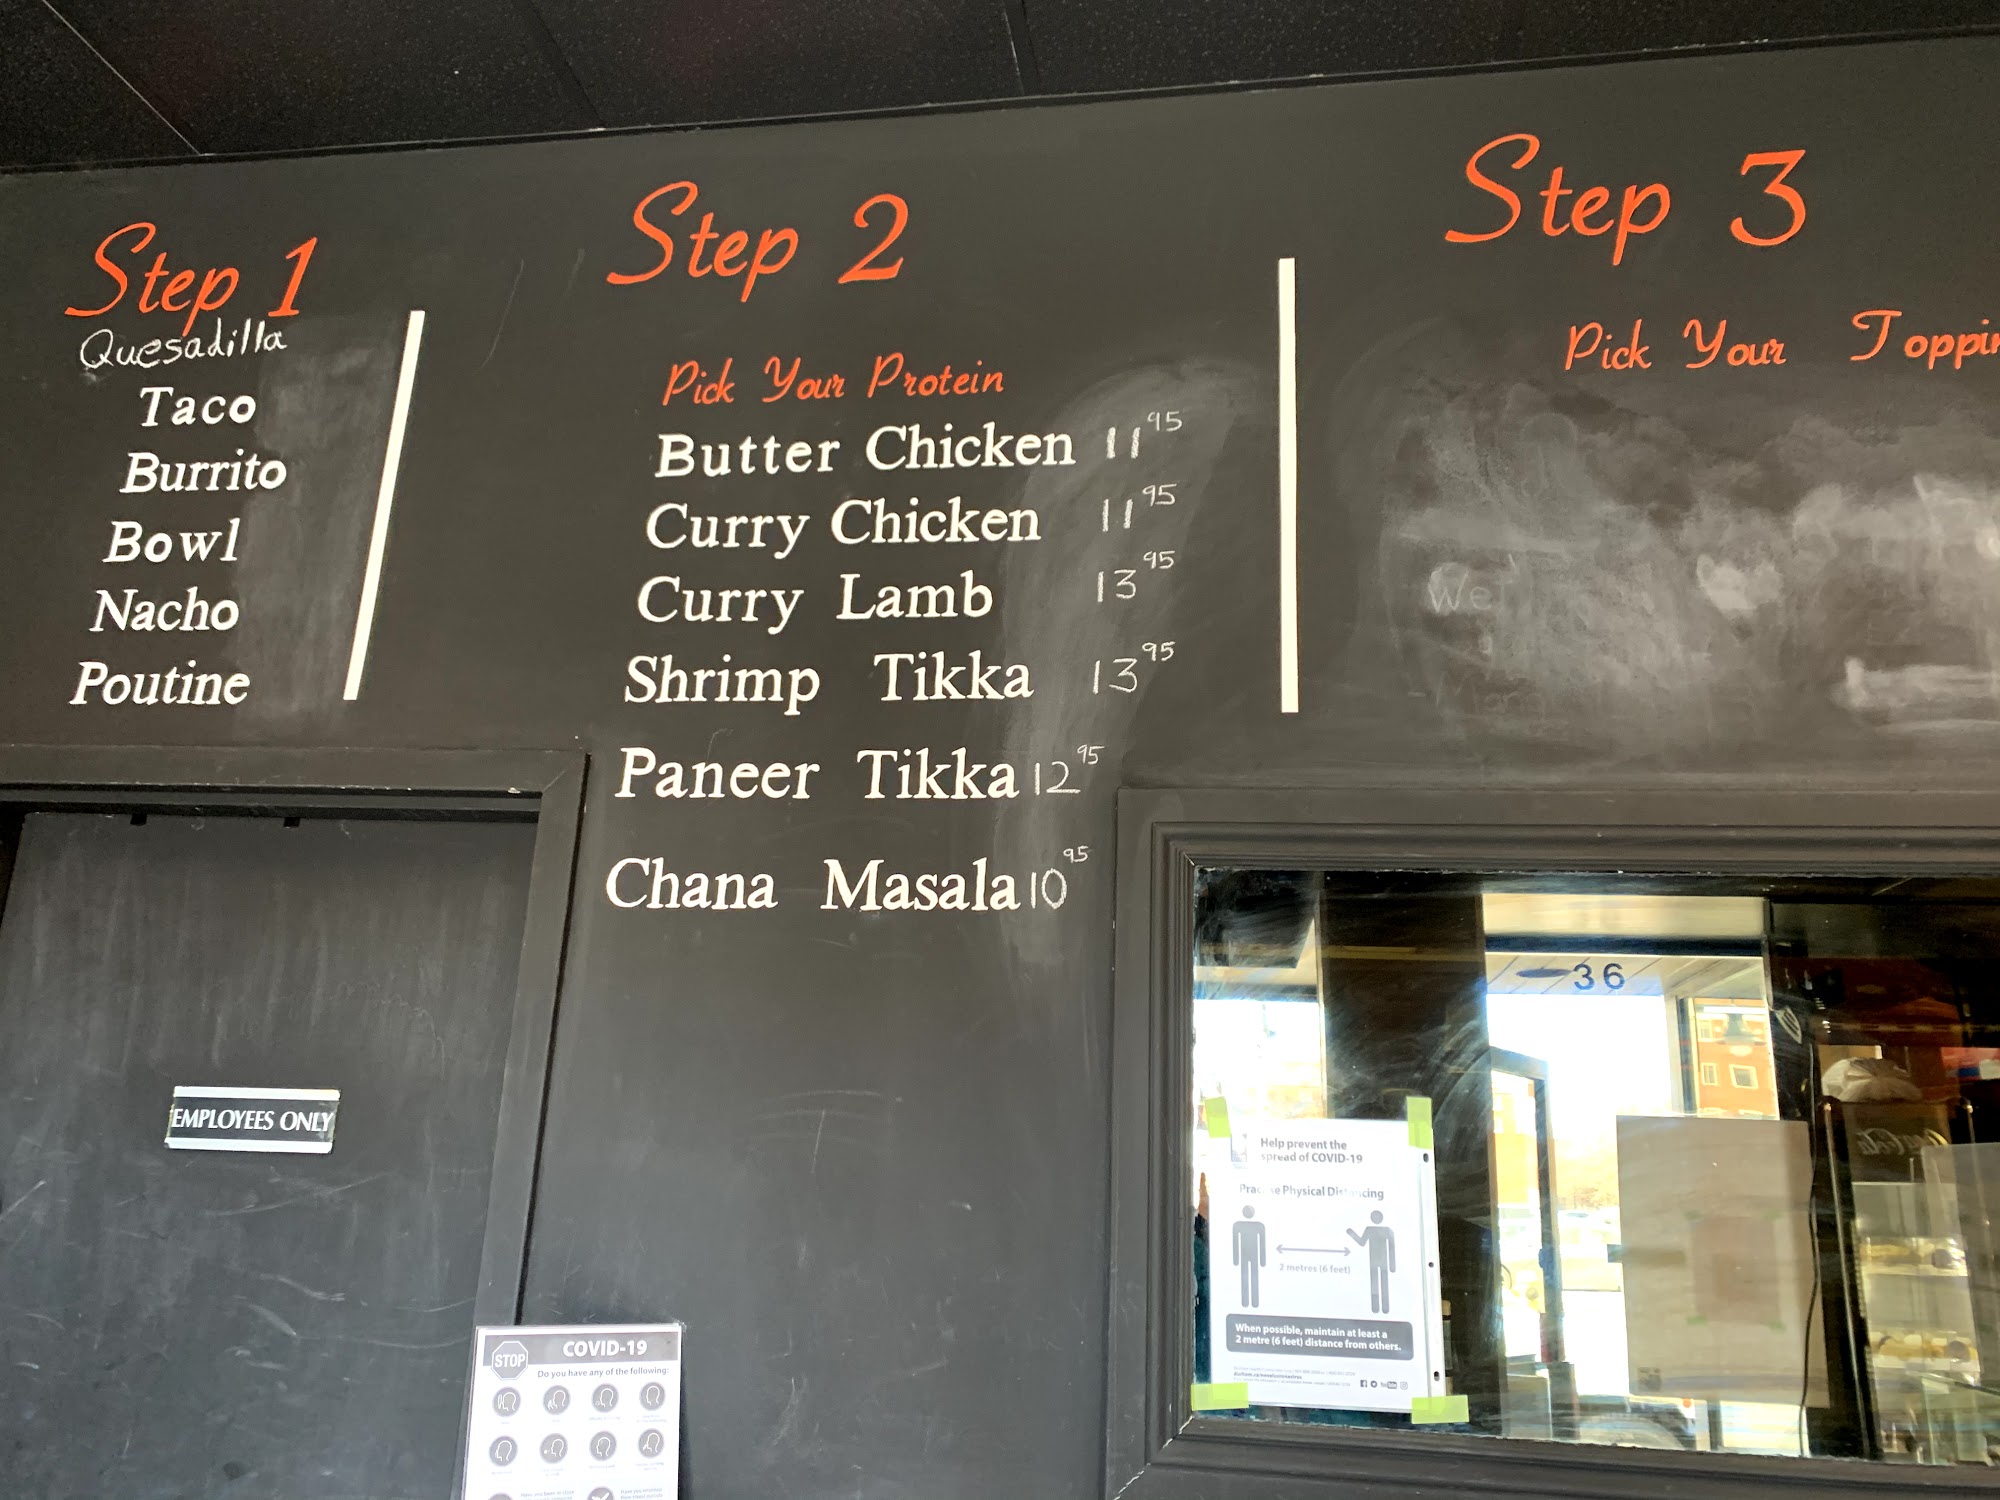 Step 1
Quesadilla
Taco
Burrito
Bowl
Nacho
Poutine
Step 2
Pick Your Protein
Butter Chicken 11 95
Curry Chicken 11 95
Curry Lamb 13 95
Shrimp Tikka 13 95
Paneer Tikka 12 95
Chana Masala 10 95
Step 3
Pick Your Toppin
EMPLOYEES ONLY
36
Help prevent the
spread of COVID-19
Physical
2 metres (6 feet)
When possible, maintain at least a
2 metre (6 feet) distance from others.
STOP
COVID-19
Do you have any of the following: